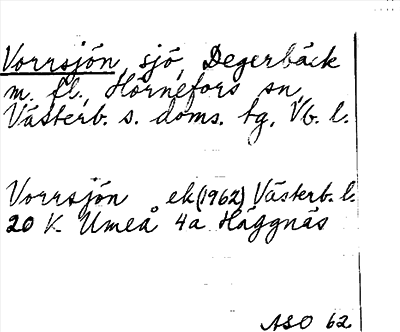 Vorrsjön, sjö, Degerbäck
m. fl., Hörnefors sn,
Västerb. s. doms. tg, Vb. l.
Vorrsjön ek (1962) Västerb. l.
20 K Umeå 4a Häggnäs
ASO 62